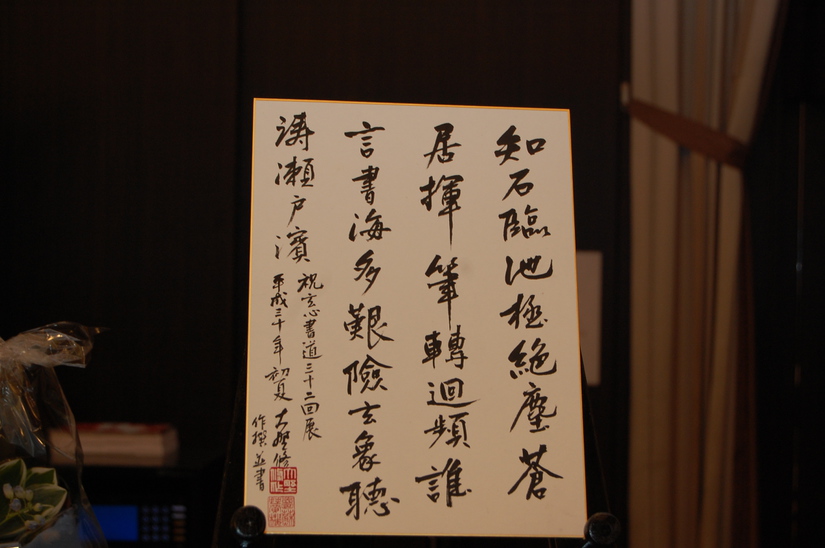 知石臨池極絶塵蒼
居揮筆轉迴頻誰
言書海多艱險玄象聴
濤瀬戸濱
祝玄心書道三十二回展
平成三十年初夏 大野修
作撰並書